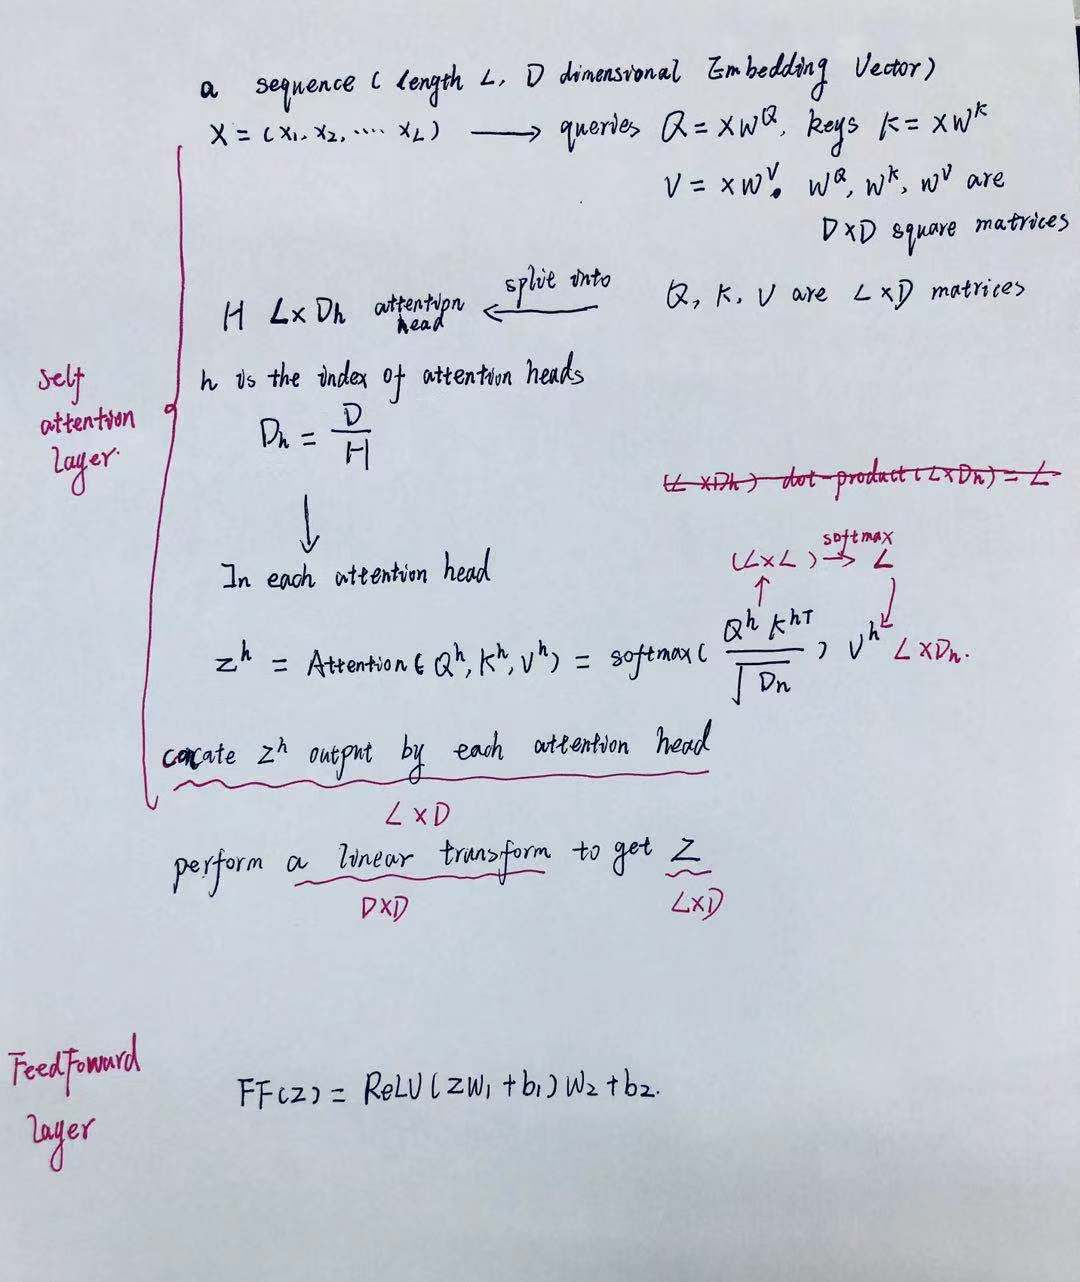 a sequence ( length L, D dimensional Embedding Vector)
X = (X1, X2, .... XL) ⟶ queries Q = XW^Q, keys K = XW^K
V = XW^V. W^Q, W^K, W^V are
D×D square matrices
Q, K, V are L×D matrices
split into
⟵
H L×Dh attention head
h is the index of attention heads
Dh = D/H
↓
Self
attention
layer.
(L×Dh) dot-product (L×Dh) = L
In each attention head
(L×L) softmax → L
Z^h = Attention(Q^h, K^h, V^h) = softmax( Q^h K^hT / √Dh ) V^h L×Dh.
concate Z^h output by each attention head
L×D
perform a linear transform to get Z
D×D L×D
FeedFoward
layer
FF(Z) = ReLU(ZW1 + b1)W2 + b2.